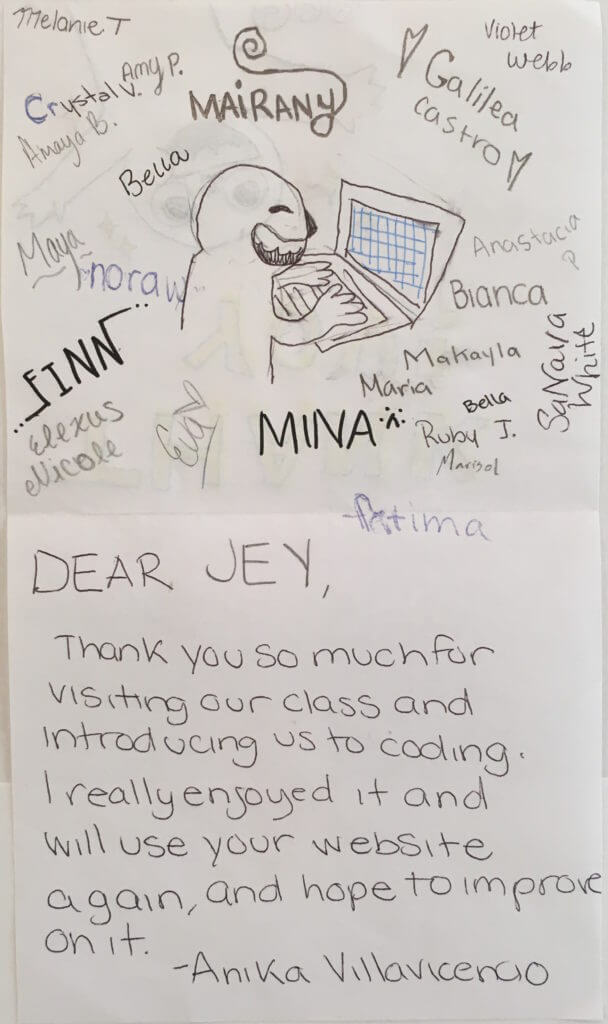 Melanie T
Violet
Webb
Amy P.
Crystal V.
MAIRANY
Galilea
Castro
Amaya B.
Bella
Maya
nora w
Anastacia
P
Bianca
FINN
Makayla
Maria
SaNara
White
Elexus
Nicole
Eva
MINA
Bella
Ruby J.
Marisol
Fatima
DEAR JEY,
Thank you so much for
visiting our class and
introducing us to coding.
I really enjoyed it and
will use your website
again, and hope to improve
on it.
-Anika Villavicencio